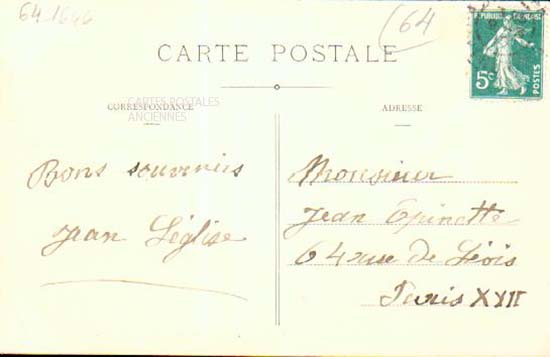 64-1646
64
RÉPUBLIQUE FRANÇAISE
5c
POSTES
CARTE POSTALE
CORRESPONDANCE
CARTES POSTALES
ANCIENNES
ADRESSE
Bons souvenirs
Jean Léglise
Monsieur
Jean Epinette
64 rue de Lévis
Paris XVII